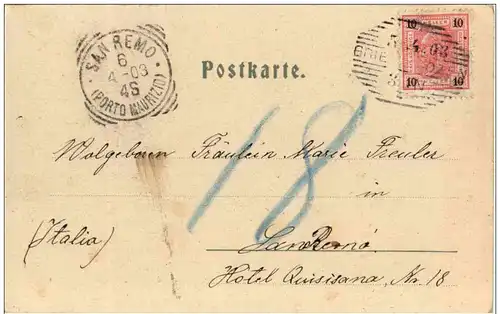 SAN REMO
6
4-03
4S
(PORTO MAURIZIO)
Postkarte.
10 10
4.03
10 10
18
Wolgeborn Fräulein Marie Freuler
in
(Italia)
San Remo
Hotel Quisisana, Nr. 18